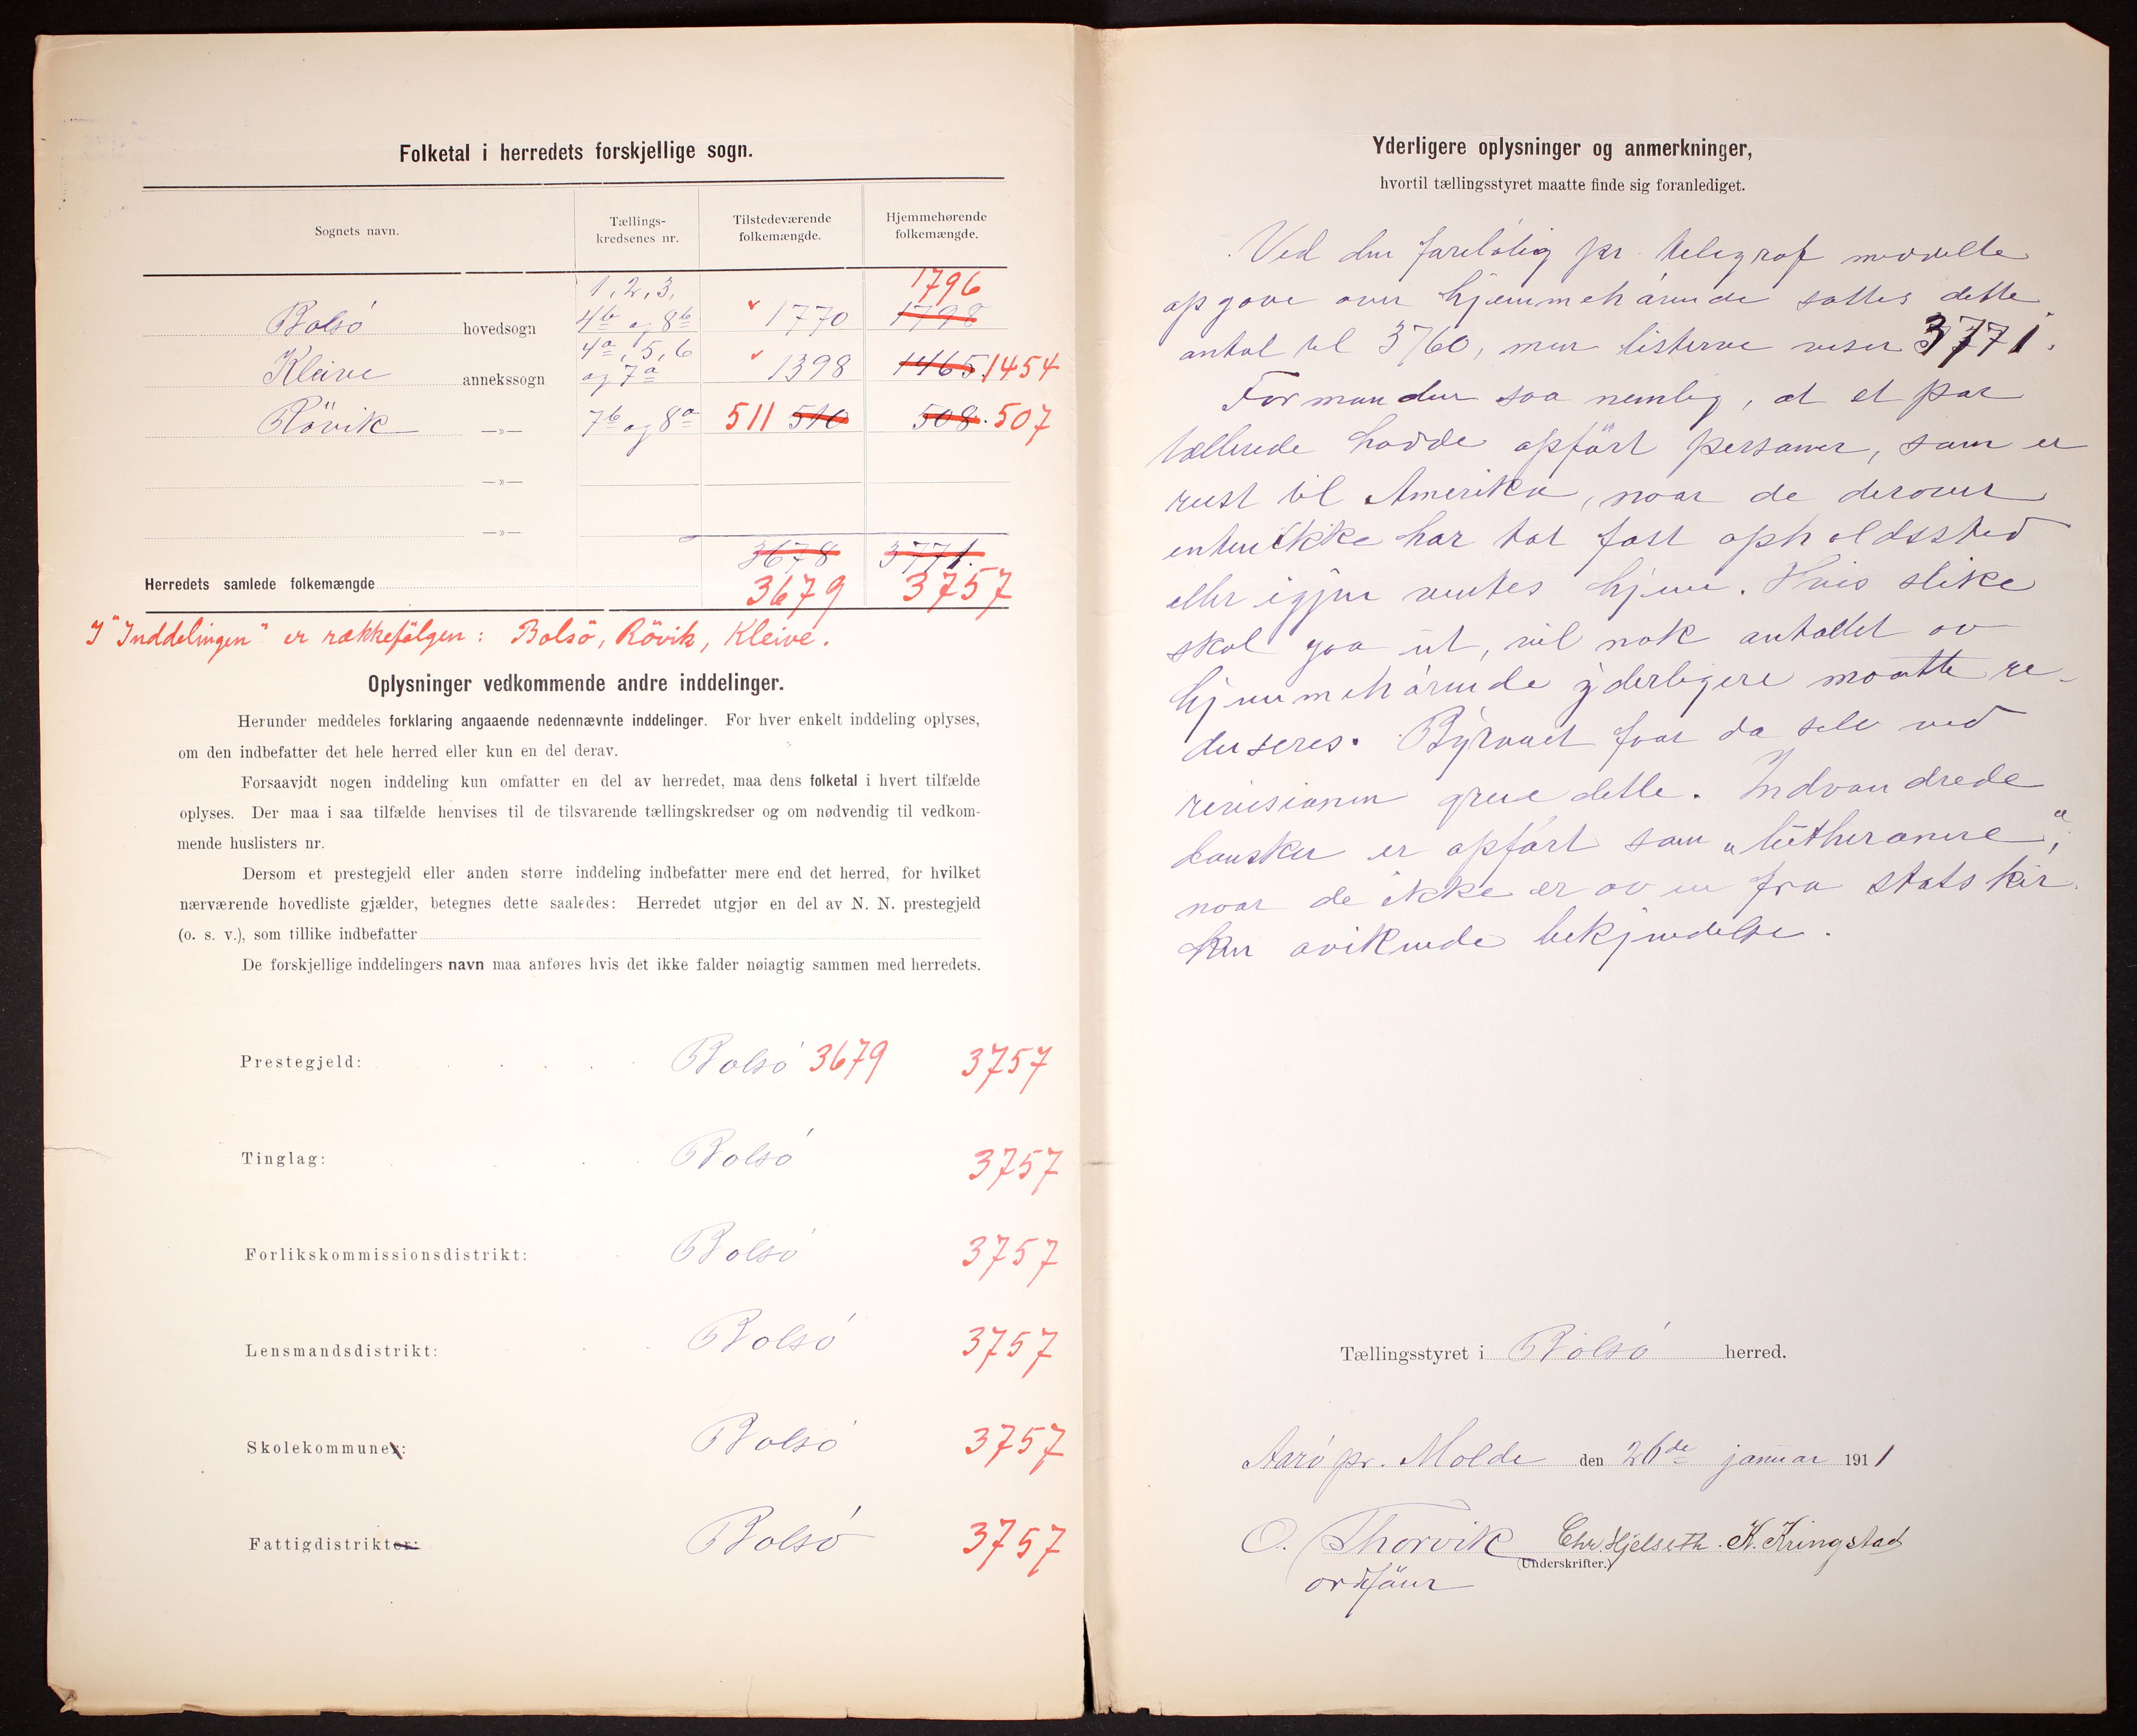 Folketal i herredets forskjellige sogn.
Sognets navn. Tællings-kredsenes nr. Tilstedeværende folkemængde. Hjemmehørende folkemængde.
1, 2, 3, 1796
Bolsö hovedsogn 4b og 8b 1770 1798
4a, 5, 6
Kleive annekssogn og 7a 1398 1465. 1454
Rövik —»— 7b og 8a 511 510 508. 507
—»—
—»—
3678 3771.
Herredets samlede folkemængde 3679 3757
I "Inddelingen" er rækkefölgen: Bolsö, Rövik, Kleive.
Oplysninger vedkommende andre inddelinger.
Herunder meddeles forklaring angaaende nedennævnte inddelinger. For hver enkelt inddeling oplyses,
om den indbefatter det hele herred eller kun en del derav.
Forsaavidt nogen inddeling kun omfatter en del av herredet, maa dens folketal i hvert tilfælde
oplyses. Der maa i saa tilfælde henvises til de tilsvarende tællingskredser og om nødvendig til vedkom-
mende huslisters nr.
Dersom et prestegjeld eller anden større inddeling indbefatter mere end det herred, for hvilket
nærværende hovedliste gjælder, betegnes dette saaledes: Herredet utgjør en del av N. N. prestegjeld
(o. s. v.), som tillike indbefatter
De forskjellige inddelingers navn maa anføres hvis det ikke falder nøiagtig sammen med herredets.
Prestegjeld: Bolsó 3679 3757
Tinglag: Bolsó 3757
Forlikskommissionsdistrikt: Bolsó 3757
Lensmandsdistrikt: Bolsó 3757
Skolekommuner: Bolsó 3757
Fattigdistrikter: Bolsó 3757
Yderligere oplysninger og anmerkninger,
hvortil tællingsstyret maatte finde sig foranlediget.
Ved den forelöbig pr. telegraf meddelte
opgave over hjemmehörende sattes dette
antal til 3760, men listerne viser 3771.
Formanden saa nemlig, at et par
tællerede hadde opfört personer, som er
reist til Amerika, naar de derover
enten ikke har tat fast opholdssted
eller igjen ventes hjem. Hvis slike
skal gaa ut, vil nok antallet av
hjemmehörende yderligere maatte re-
duseres. Byraaet faar da selv ved
revisionen greie dette. Indvandrede
dansker er opfört som „lutheranere",
naar de ikke er av en fra statskir-
ken avikende bekjendelse.
Tællingsstyret i Bolsó herred.
Aaró pr. Molde den 26de januar 1911
O. Thorvik Chr Hjelseth. K. Kringstad
(Underskrifter.)
ordförer